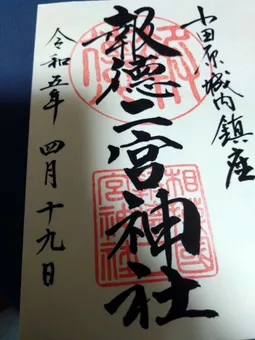 小田原城内鎮座
報徳二宮神社
令和五年 四月 十九日